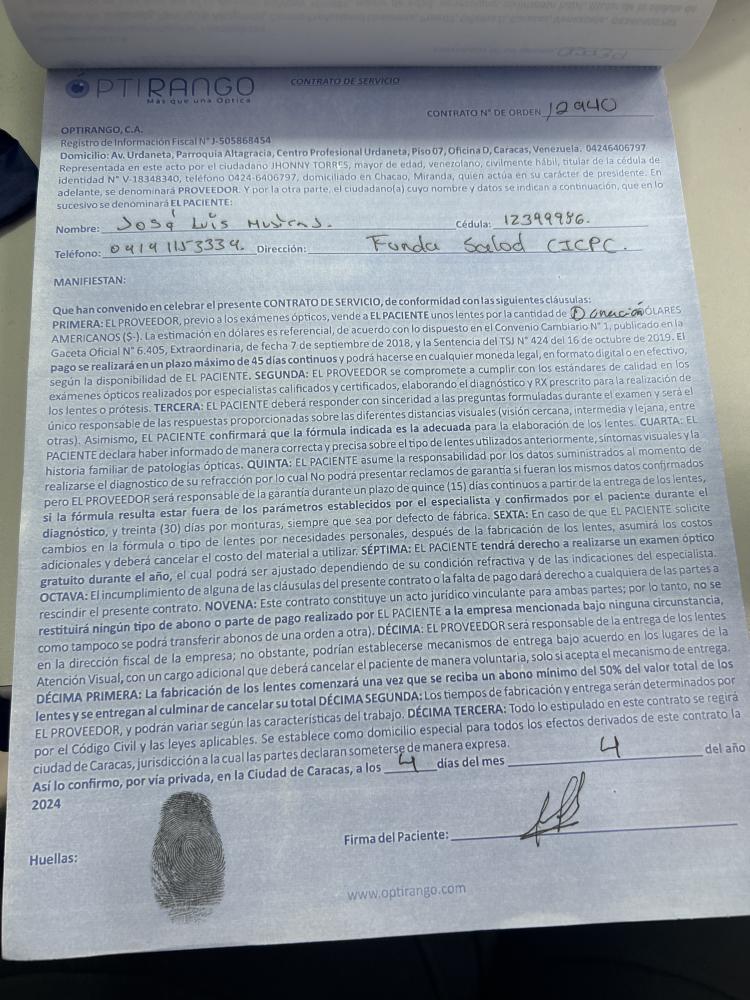 ÓPTIRANGO
Más que una Óptica
CONTRATO DE SERVICIO
CONTRATO N° DE ORDEN 12940
OPTIRANGO, C.A.
Registro de Información Fiscal N° J-505868454
Domicilio: Av. Urdaneta, Parroquia Altagracia, Centro Profesional Urdaneta, Piso 07, Oficina D, Caracas, Venezuela. 04246406797
Representada en este acto por el ciudadano JHONNY TORRES, mayor de edad, venezolano, civilmente hábil, titular de la cédula de
identidad N° V-18348340, teléfono 0424-6406797, domiciliado en Chacao, Miranda, quien actúa en su carácter de presidente. En
adelante, se denominará PROVEEDOR. Y por la otra parte, el ciudadano(a) cuyo nombre y datos se indican a continuación, que en lo
sucesivo se denominará EL PACIENTE:
Nombre: José Luis Cédula: 12399996.
Teléfono: 04141153339. Dirección: Funda Salod CICPC.
MANIFIESTAN:
Que han convenido en celebrar el presente CONTRATO DE SERVICIO, de conformidad con las siguientes cláusulas:
PRIMERA: EL PROVEEDOR, previo a los exámenes ópticos, vende a EL PACIENTE unos lentes por la cantidad de Donación DÓLARES
AMERICANOS ($-). La estimación en dólares es referencial, de acuerdo con lo dispuesto en el Convenio Cambiario N° 1, publicado en la
Gaceta Oficial N° 6.405, Extraordinaria, de fecha 7 de septiembre de 2018, y la Sentencia del TSJ N° 424 del 16 de octubre de 2019. El
pago se realizará en un plazo máximo de 45 días continuos y podrá hacerse en cualquier moneda legal, en formato digital o en efectivo,
según la disponibilidad de EL PACIENTE. SEGUNDA: EL PROVEEDOR se compromete a cumplir con los estándares de calidad en los
exámenes ópticos realizados por especialistas calificados y certificados, elaborando el diagnóstico y RX prescrito para la realización de
los lentes o prótesis. TERCERA: EL PACIENTE deberá responder con sinceridad a las preguntas formuladas durante el examen y será el
único responsable de las respuestas proporcionadas sobre las diferentes distancias visuales (visión cercana, intermedia y lejana, entre
otras). Asimismo, EL PACIENTE confirmará que la fórmula indicada es la adecuada para la elaboración de los lentes. CUARTA: EL
PACIENTE declara haber informado de manera correcta y precisa sobre el tipo de lentes utilizados anteriormente, síntomas visuales y la
historia familiar de patologías ópticas. QUINTA: EL PACIENTE asume la responsabilidad por los datos suministrados al momento de
realizarse el diagnostico de su refracción por lo cual No podrá presentar reclamos de garantía si fueran los mismos datos confirmados
pero EL PROVEEDOR será responsable de la garantía durante un plazo de quince (15) días continuos a partir de la entrega de los lentes,
si la fórmula resulta estar fuera de los parámetros establecidos por el especialista y confirmados por el paciente durante el
diagnóstico, y treinta (30) días por monturas, siempre que sea por defecto de fábrica. SEXTA: En caso de que EL PACIENTE solicite
cambios en la fórmula o tipo de lentes por necesidades personales, después de la fabricación de los lentes, asumirá los costos
adicionales y deberá cancelar el costo del material a utilizar. SÉPTIMA: EL PACIENTE tendrá derecho a realizarse un examen óptico
gratuito durante el año, el cual podrá ser ajustado dependiendo de su condición refractiva y de las indicaciones del especialista.
OCTAVA: El incumplimiento de alguna de las cláusulas del presente contrato o la falta de pago dará derecho a cualquiera de las partes a
rescindir el presente contrato. NOVENA: Este contrato constituye un acto jurídico vinculante para ambas partes; por lo tanto, no se
restituirá ningún tipo de abono o parte de pago realizado por EL PACIENTE a la empresa mencionada bajo ninguna circunstancia,
como tampoco se podrá transferir abonos de una orden a otra). DÉCIMA: EL PROVEEDOR será responsable de la entrega de los lentes
en la dirección fiscal de la empresa; no obstante, podrían establecerse mecanismos de entrega bajo acuerdo en los lugares de la
Atención Visual, con un cargo adicional que deberá cancelar el paciente de manera voluntaria, solo si acepta el mecanismo de entrega.
DÉCIMA PRIMERA: La fabricación de los lentes comenzará una vez que se reciba un abono mínimo del 50% del valor total de los
lentes y se entregan al culminar de cancelar su total DÉCIMA SEGUNDA: Los tiempos de fabricación y entrega serán determinados por
EL PROVEEDOR, y podrán variar según las características del trabajo. DÉCIMA TERCERA: Todo lo estipulado en este contrato se regirá
por el Código Civil y las leyes aplicables. Se establece como domicilio especial para todos los efectos derivados de este contrato la
ciudad de Caracas, jurisdicción a la cual las partes declaran someterse de manera expresa.
Así lo confirmo, por vía privada, en la Ciudad de Caracas, a los 4 días del mes 4 del año
2024
Firma del Paciente:
Huellas:
www.optirango.com